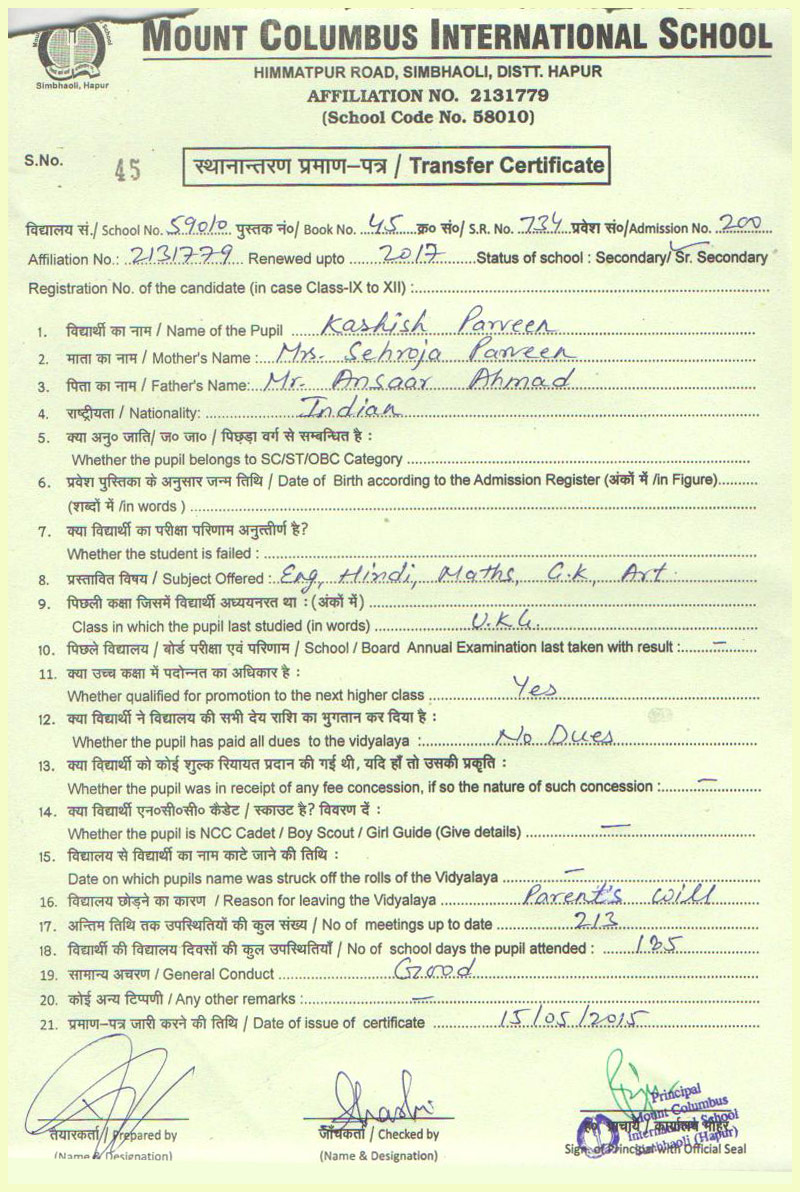 Simbhaoli, Hapur
MOUNT COLUMBUS INTERNATIONAL SCHOOL
HIMMATPUR ROAD, SIMBHAOLI, DISTT. HAPUR
AFFILIATION NO. 2131779
(School Code No. 58010)
S.No. 45
स्थानान्तरण प्रमाण-पत्र / Transfer Certificate
विद्यालय सं./ School No. 59010 पुस्तक नं०/ Book No. 45 क्र० सं०/ S.R. No. 734 प्रवेश सं०/Admission No. 200
Affiliation No.: 2131779 Renewed upto 2017 Status of school : Secondary/ Sr. Secondary
Registration No. of the candidate (in case Class-IX to XII) :
1. विद्यार्थी का नाम / Name of the Pupil Kashish Parveen
2. माता का नाम / Mother's Name : Mrs. Sehroja Parveen
3. पिता का नाम / Father's Name: Mr. Ansaar Ahmad
4. राष्ट्रीयता / Nationality: Indian
5. क्या अनु० जाति/ ज० जा० / पिछड़ा वर्ग से सम्बन्धित है :
Whether the pupil belongs to SC/ST/OBC Category
6. प्रवेश पुस्तिका के अनुसार जन्म तिथि / Date of Birth according to the Admission Register (अंकों में /in Figure)
(शब्दों में /in words )
7. क्या विद्यार्थी का परीक्षा परिणाम अनुत्तीर्ण है?
Whether the student is failed :
8. प्रस्तावित विषय / Subject Offered : Eng, Hindi, Maths, G.K, Art
9. पिछली कक्षा जिसमें विद्यार्थी अध्ययनरत था : (अंकों में)
Class in which the pupil last studied (in words) U.K.G.
10. पिछले विद्यालय / बोर्ड परीक्षा एवं परिणाम / School / Board Annual Examination last taken with result : —
11. क्या उच्च कक्षा में पदोन्नत का अधिकार है :
Whether qualified for promotion to the next higher class Yes
12. क्या विद्यार्थी ने विद्यालय की सभी देय राशि का भुगतान कर दिया है :
Whether the pupil has paid all dues to the vidyalaya : No Dues
13. क्या विद्यार्थी को कोई शुल्क रियायत प्रदान की गई थी, यदि हाँ तो उसकी प्रकृति :
Whether the pupil was in receipt of any fee concession, if so the nature of such concession : —
14. क्या विद्यार्थी एन०सी०सी० कैडेट / स्काउट है? विवरण दें :
Whether the pupil is NCC Cadet / Boy Scout / Girl Guide (Give details) —
15. विद्यालय से विद्यार्थी का नाम काटे जाने की तिथि :
Date on which pupils name was struck off the rolls of the Vidyalaya —
16. विद्यालय छोड़ने का कारण / Reason for leaving the Vidyalaya Parent's will
17. अन्तिम तिथि तक उपस्थितियों की कुल संख्य / No of meetings up to date 213
18. विद्यार्थी की विद्यालय दिवसों की कुल उपस्थितियाँ / No of school days the pupil attended : 185
19. सामान्य अचरण / General Conduct Good
20. कोई अन्य टिप्पणी / Any other remarks : —
21. प्रमाण-पत्र जारी करने की तिथि / Date of issue of certificate 15/05/2015
Principal
Mount Columbus
International School
Simbhaoli (Hapur)
तैयारकर्ता / Prepared by जाँचकर्ता / Checked by प्राचार्य / कार्यालय मोहर
(Name & Designation) (Name & Designation) Sign. of Principal with Official Seal